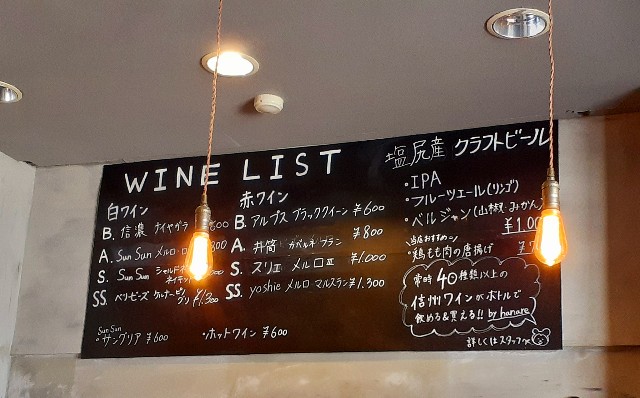 WINE LIST
白ワイン
B. 信濃 ナイヤガラ
A. Sun Sun メルロ
S. Sun Sun
SS. ベリービーズ ¥1,300
Sun Sun
・サングリア ¥600
・ホットワイン ¥600
赤ワイン
B. アルプス ブラッククイーン ¥600
A. 井筒 カベルネ・フラン ¥800
S. スリエ メルロⅢ ¥1.000
SS. yoshie メルロ マルスラン ¥1.300
塩尻産 クラフトビール
・IPA
・フルーツエール(リンゴ)
・ベルジャン(山椒・みかん)
当店おすすめ
・鶏もも肉の唐揚げ
常時40種類以上の
信州ワインがボトルで
飲める&買える!! by hanare
詳しくはスタッフへ